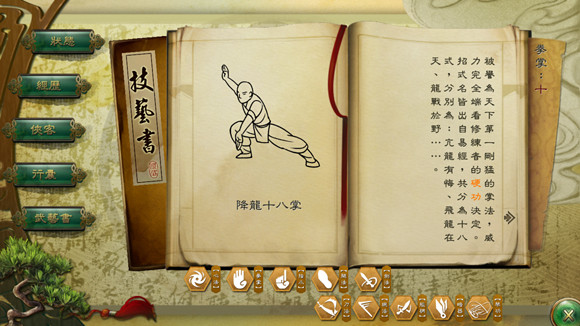 狀態
經歷
俠客
行囊
武藝書
技藝書
降龍十八掌
拳掌：十
被譽為天下第一剛猛的掌法，威
力完全端看修練者的硬功決定。
招式名皆出自易經，共分為十八
式，分別為：亢龍有悔、飛龍在
天、龍戰於野……。